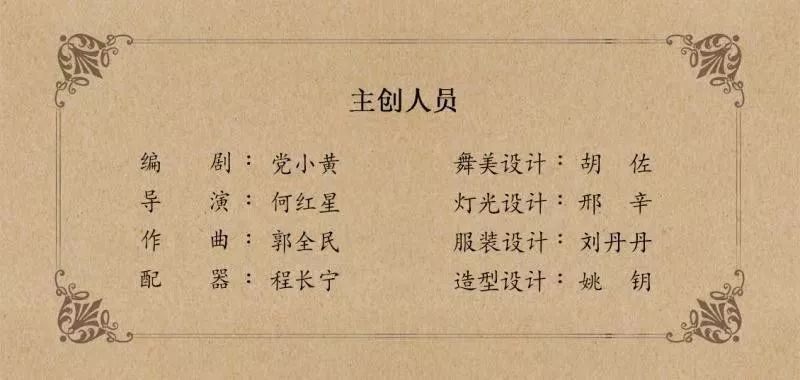 主创人员
编 剧：党小黄
导 演：何红星
作 曲：郭全民
配 器：程长宁
舞美设计：胡 佐
灯光设计：邢 辛
服装设计：刘丹丹
造型设计：姚 钥